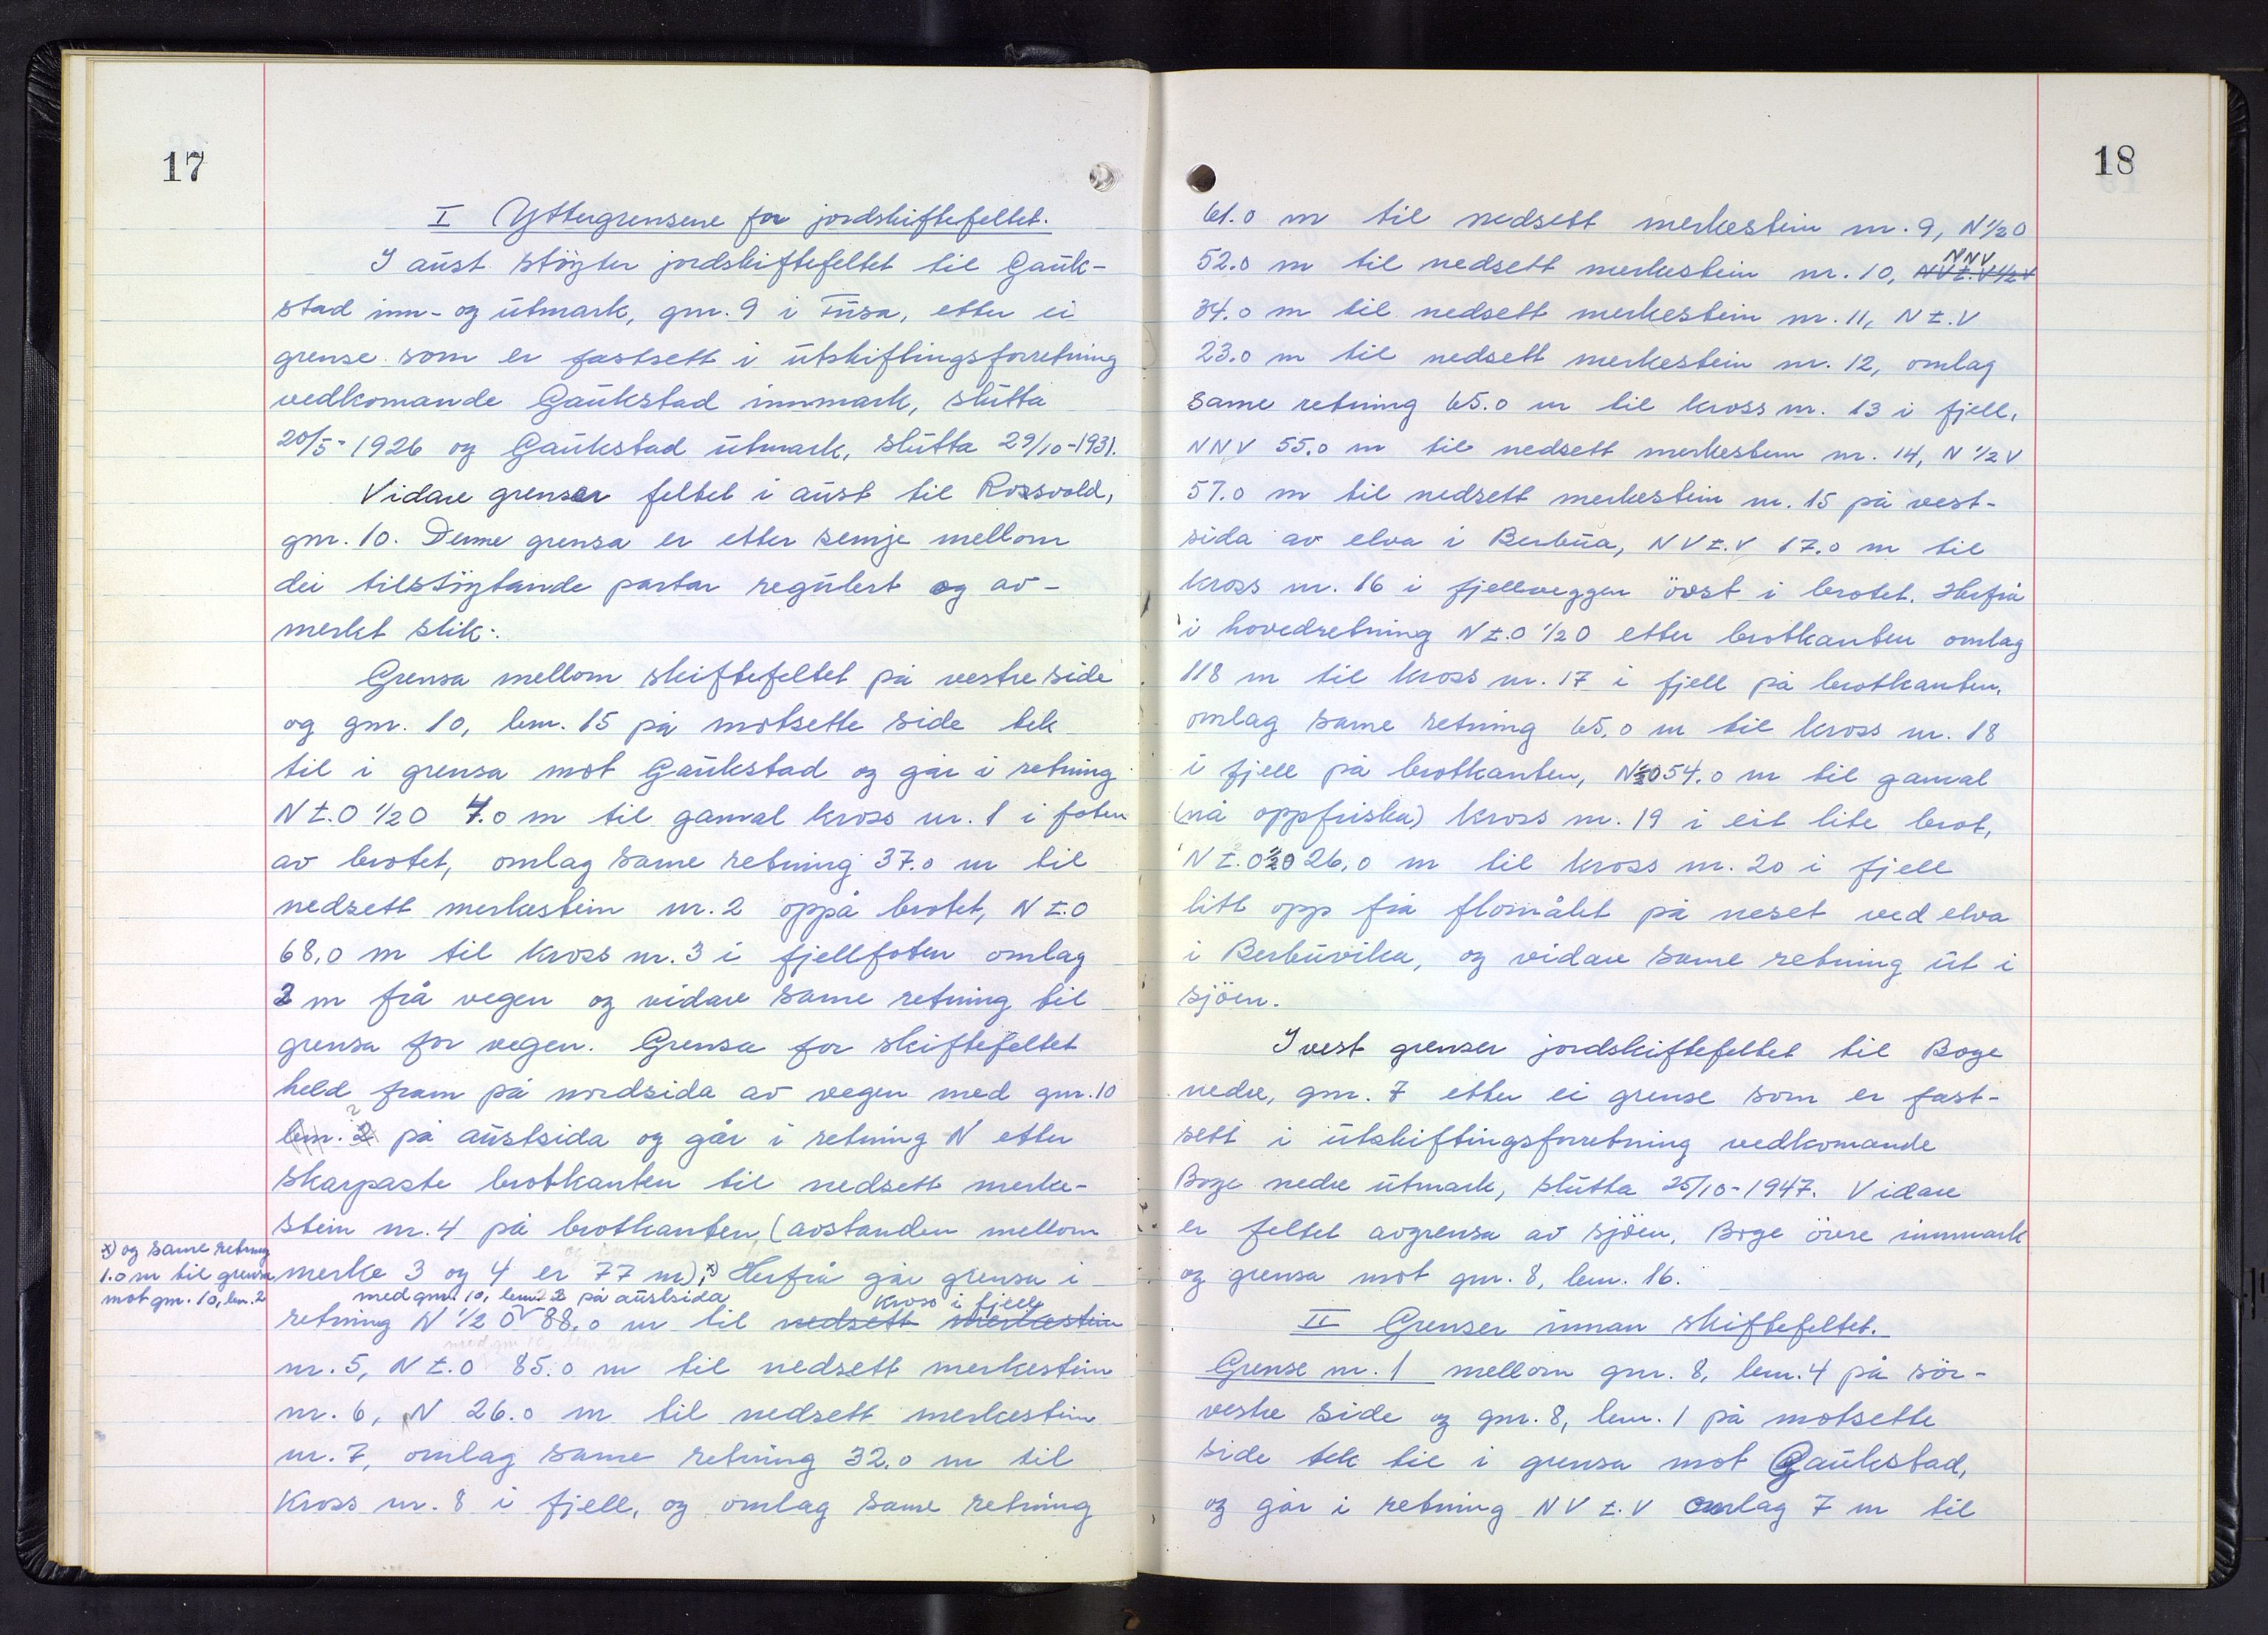 17
I Yttergrensene for jordskiftefeltet.
I aust støyter jordskiftefeltet til Gauk-
stad inn- og utmark, gnr. 9 i Fusa, etter ei
grense som er fastsett i utskiftingsforretning
vedkomande Gaukstad innmark, slutta
20/5-1926 og Gaukstad utmark, slutta 29/10-1931.
Vidare grenser feltet i aust til Rossvold,
gnr. 10. Denne grensa er etter semje mellom
dei tilstøytande partar regulert og av-
merkt slik:
Grensa mellom skiftefeltet på vestre side
og gnr. 10, bnr. 15 på motsette side tek
til i grensa mot Gaukstad og går i retning
N t.O 1/2 O 7.0 m til gamal kross nr. 1 i foten
av brotet, omlag same retning 37.0 m til
nedsett merkestein nr. 2 oppå brotet, N t.O
68.0 m til kross nr. 3 i fjellfoten omlag
2 m frå vegen og vidare same retning til
grensa for vegen. Grensa for skiftefeltet
held fram på nordsida av vegen med gnr. 10
bnr. 2 på austsida og går i retning N etter
skarpaste brotkanten til nedsett merke-
stein nr. 4 på brotkanten (avstanden mellom
x) og same retning
1.0 m til grensa
mot gnr. 10, bnr. 2
merke 3 og 4 er 77 m),x) Herfrå går grensa i
med gnr. 10, bnr. 2 på austsida
kross i fjell
retning N 1/2 O 88.0 m til nedsett merkestein
nr. 5, N t.O 85.0 m til nedsett merkestein
nr. 6, N 26.0 m til nedsett merkestein
nr. 7, omlag same retning 32.0 m til
kross nr. 8 i fjell, og omlag same retning
18
61.0 m til nedsett merkestein nr. 9, N 1/2 O
NNV
52.0 m til nedsett merkestein nr. 10, NV t.V 1/2 V
34.0 m til nedsett merkestein nr. 11, N t.V
23.0 m til nedsett merkestein nr. 12, omlag
same retning 65.0 m til kross nr. 13 i fjell,
NNV 55.0 m til nedsett merkestein nr. 14, N 1/2 V
57.0 m til nedsett merkestein nr. 15 på vest-
sida av elva i Berbua, NV t.V 17.0 m til
kross nr. 16 i fjellveggen övst i brotet. Herfrå
i hovedretning N t.O 1/2 O etter brotkanten omlag
118 m til kross nr. 17 i fjell på brotkanten,
omlag same retning 65.0 m til kross nr. 18
i fjell på brotkanten, N 1/2 O 54.0 m til gamal
(nå oppfriska) kross nr. 19 i eit lite brot,
N t.O 1/2 O 26.0 m til kross nr. 20 i fjell
litt opp frå flomålet på neset ved elva
i Berbuvika, og vidare same retning ut i
sjöen.
I vest grenser jordskiftefeltet til Boge
nedre, gnr. 7 etter ei grense som er fast-
sett i utskiftingsforretning vedkomande
Boge nedre utmark, slutta 25/10-1947. Vidare
er feltet avgrensa av sjöen, Boge övre innmark
og grensa mot gnr. 8, bnr. 16.
II Grenser innan skiftefeltet.
Grense nr. 1 mellom gnr. 8, bnr. 4 på sör-
vestre side og gnr. 8, bnr. 1 på motsette
side tek til i grensa mot Gaukstad,
og går i retning NV t.V omlag 7 m til